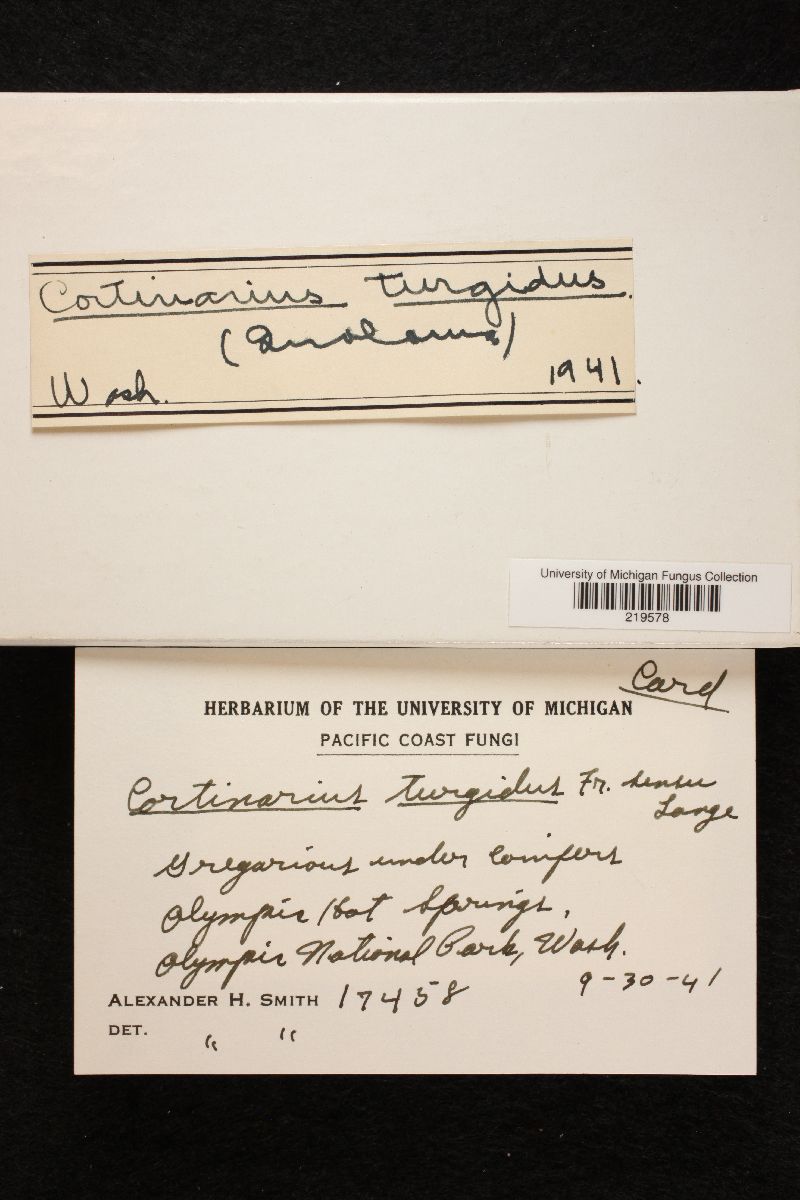 Cortinarius turgidus.
Wash. 1941.
University of Michigan Fungus Collection
219578
Card
HERBARIUM OF THE UNIVERSITY OF MICHIGAN
PACIFIC COAST FUNGI
Cortinarius turgidus Fr. sensu
Lange
Gregarious under conifers
Olympic Hot Springs,
Olympic National Park, Wash.
9-30-41
ALEXANDER H. SMITH 17458
DET. " "